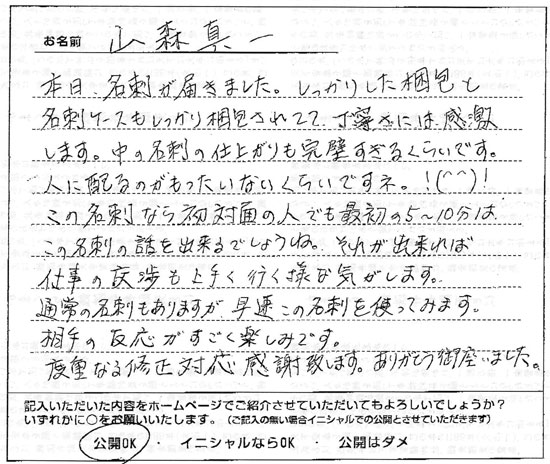 お名前 山森真一
本日、名刺が届きました。しっかりした梱包と
名刺ケースもしっかり梱包されてて、丁寧さには感激
します。中の名刺の仕上がりも完璧すぎるくらいです。
人に配るのがもったいないくらいですネ。!(^^)!
この名刺なら初対面の人でも最初の5～10分は、
この名刺の話を出来るでしょうね。それが出来れば
仕事の交渉も上手く行く様な気がします。
通常の名刺もありますが、早速この名刺を使ってみます。
相手の反応がすごく楽しみです。
度重なる修正対応、感謝致します。ありがとう御座いました。
記入いただいた内容をホームページでご紹介させていただいてもよろしいでしょうか?
いずれかに○をお願いいたします。(ご記入の無い場合イニシャルでの公開とさせていただきます)
公開OK ・ イニシャルならOK ・ 公開はダメ